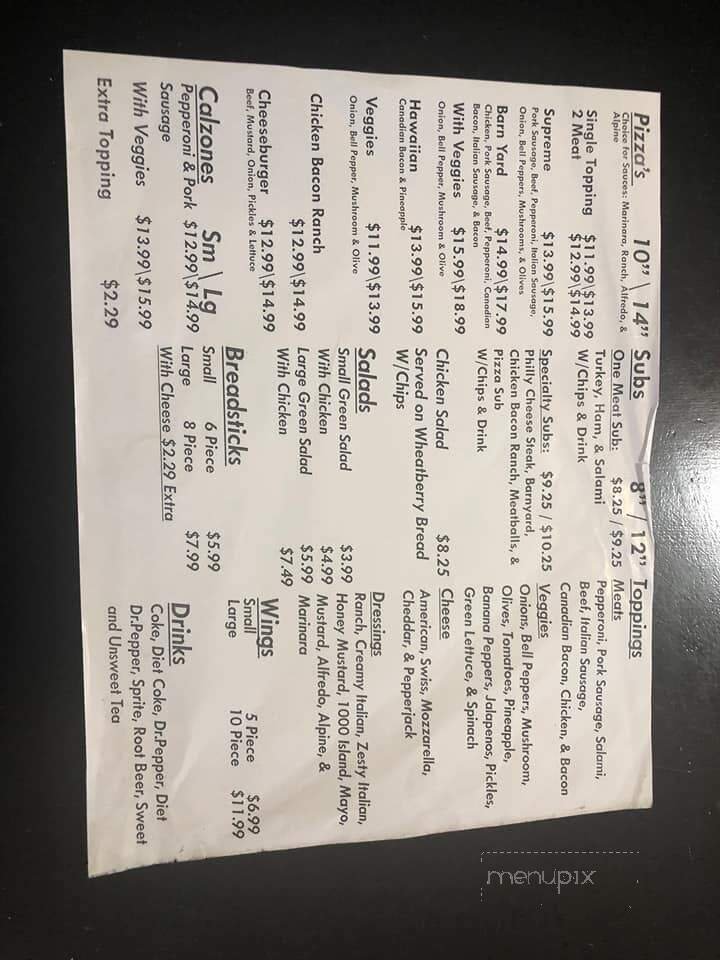 Pizza's 10" \ 14"
Choice for Sauces: Marinara, Ranch, Alfredo, &
Alpine
Single Topping $11.99\$13.99
2 Meat $12.99\$14.99
Supreme $13.99\$15.99
Pork Sausage, Beef, Pepperoni, Italian Sausage,
Onion, Bell Peppers, Mushrooms, & Olives
Barn Yard $14.99\$17.99
Chicken, Pork Sausage, Beef, Pepperoni, Canadian
Bacon, Italian Sausage, & Bacon
With Veggies $15.99\$18.99
Onion, Bell Pepper, Mushroom & Olive
Hawaiian $13.99\$15.99
Canadian Bacon & Pineapple
Veggies $11.99\$13.99
Onion, Bell Pepper, Mushroom & Olive
Chicken Bacon Ranch
$12.99\$14.99
Cheeseburger $12.99\$14.99
Beef, Mustard, Onion, Pickles & Lettuce
Calzones Sm \ Lg
Pepperoni & Pork $12.99\$14.99
Sausage
With Veggies $13.99\$15.99
Extra Topping $2.29
Subs 8" / 12"
One Meat Sub: $8.25 / $9.25
Turkey, Ham, & Salami
W/Chips & Drink
Specialty Subs: $9.25 / $10.25
Philly Cheese Steak, Barnyard,
Chicken Bacon Ranch, Meatballs, &
Pizza Sub
W/Chips & Drink
Chicken Salad $8.25
Served on Wheatberry Bread
W/Chips
Salads
Small Green Salad $3.99
With Chicken $4.99
Large Green Salad $5.99
With Chicken $7.49
Breadsticks
Small 6 Piece $5.99
Large 8 Piece $7.99
With Cheese $2.29 Extra
Toppings
Meats
Pepperoni, Pork Sausage, Salami,
Beef, Italian Sausage,
Canadian Bacon, Chicken, & Bacon
Veggies
Onions, Bell Peppers, Mushroom,
Olives, Tomatoes, Pineapple,
Banana Peppers, Jalapenos, Pickles,
Green Lettuce, & Spinach
Cheese
American, Swiss, Mozzarella,
Cheddar, & Pepperjack
Dressings
Ranch, Creamy Italian, Zesty Italian,
Honey Mustard, 1000 Island, Mayo,
Mustard, Alfredo, Alpine, &
Marinara
Wings
Small 5 Piece $6.99
Large 10 Piece $11.99
Drinks
Coke, Diet Coke, Dr.Pepper, Diet
Dr.Pepper, Sprite, Root Beer, Sweet
and Unsweet Tea
menupix